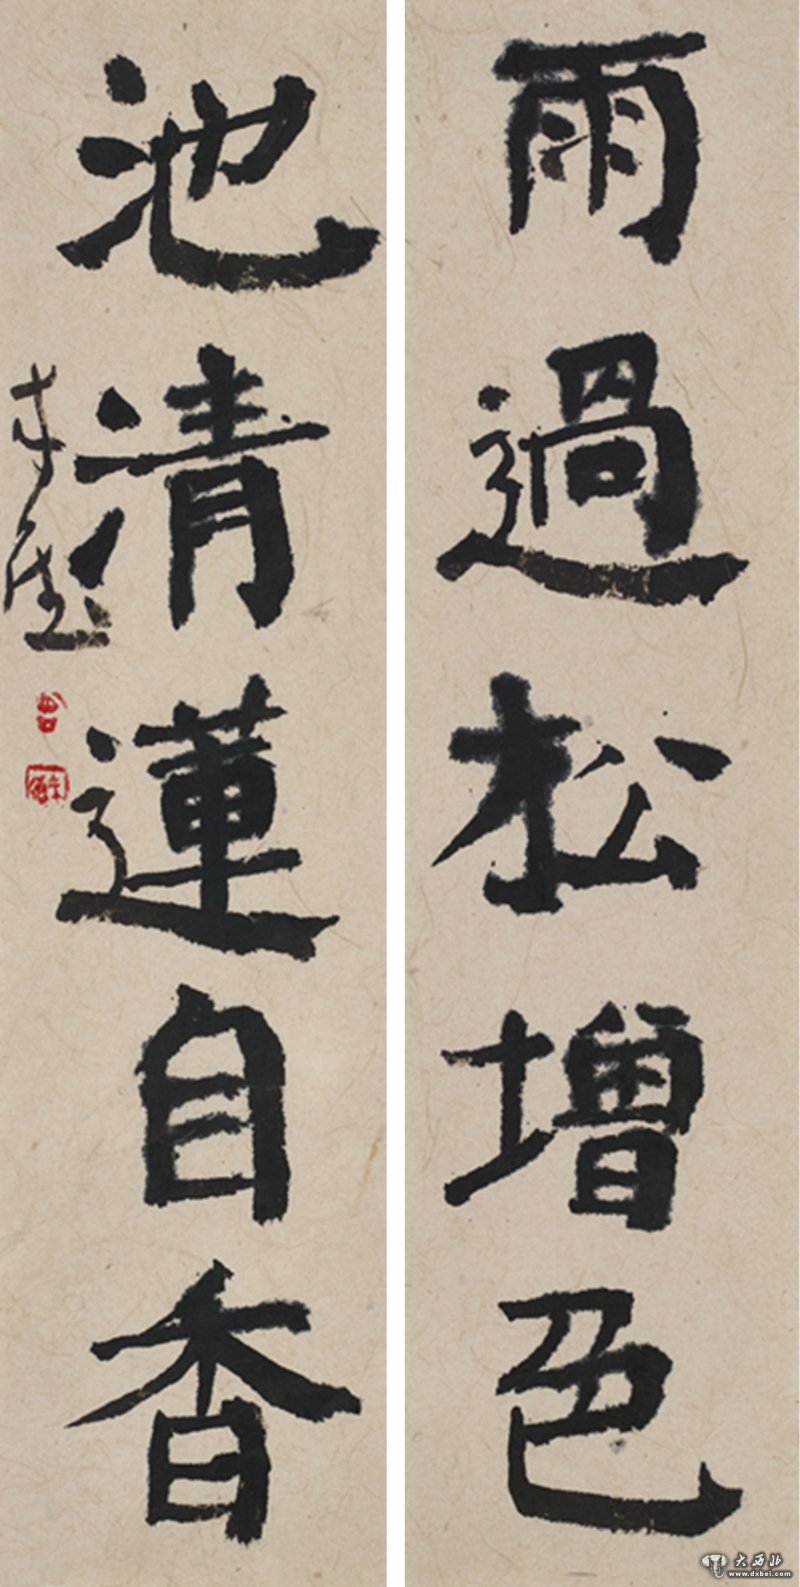 雨過松增色
池清蓮自香
大西北
www.dxbei.com